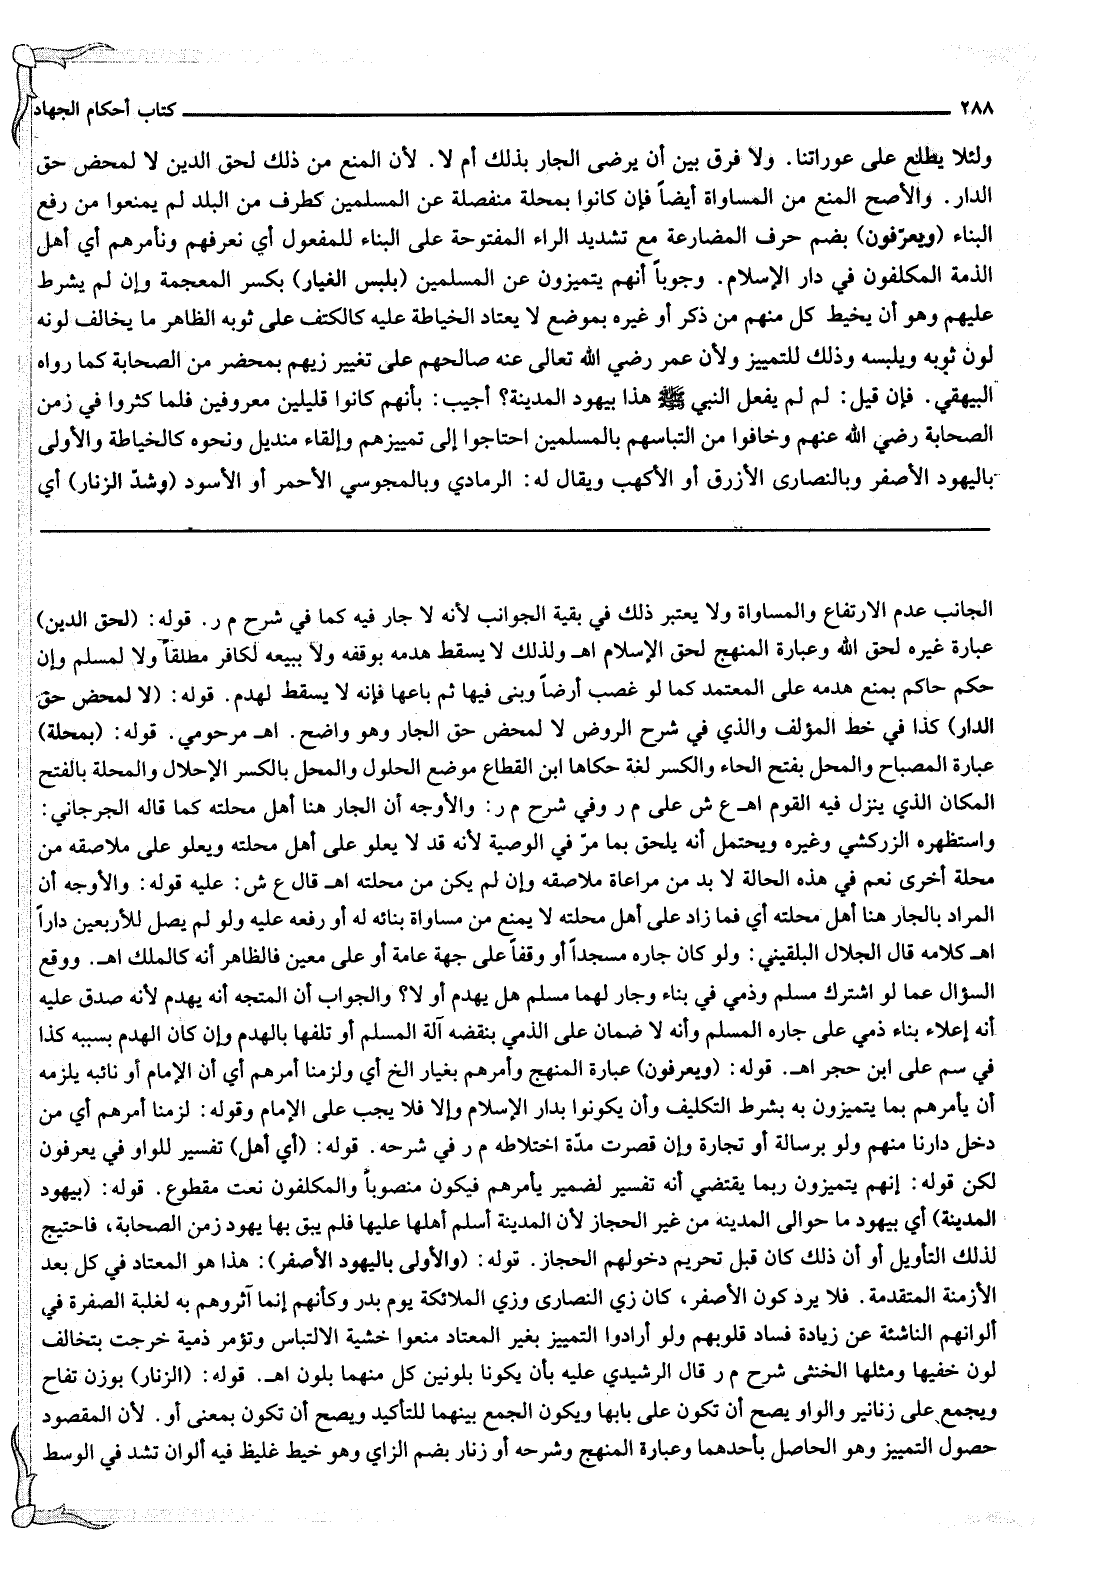 ٢٨٨ كتاب أحكام الجهاد
ولئلا يطلع على عوراتنا. ولا فرق بين أن يرضى الجار بذلك أم لا. لأن المنع من ذلك لحق الدين لا لمحض حق
الدار. والأصح المنع من المساواة أيضاً فإن كانوا بمحلة منفصلة عن المسلمين كطرف من البلد لم يمنعوا من رفع
البناء (ويعرّفون) بضم حرف المضارعة مع تشديد الراء المفتوحة على البناء للمفعول أي نعرفهم ونأمرهم أي أهل
الذمة المكلفون في دار الإسلام. وجوباً أنهم يتميزون عن المسلمين (بلبس الغيار) بكسر المعجمة وإن لم يشرط
عليهم وهو أن يخيط كل منهم من ذكر أو غيره بموضع لا يعتاد الخياطة عليه كالكتف على ثوبه الظاهر ما يخالف لونه
لون ثوبه ويلبسه وذلك للتمييز ولأن عمر رضي الله تعالى عنه صالحهم على تغيير زيهم بمحضر من الصحابة كما رواه
البيهقي. فإن قيل: لم لم يفعل النبي ﷺ هذا بيهود المدينة؟ أجيب: بأنهم كانوا قليلين معروفين فلما كثروا في زمن
الصحابة رضي الله عنهم وخافوا من التباسهم بالمسلمين احتاجوا إلى تمييزهم وإلقاء منديل ونحوه كالخياطة والأولى
باليهود الأصفر وبالنصارى الأزرق أو الأكهب ويقال له: الرمادي وبالمجوسي الأحمر أو الأسود (وشدّ الزنار) أي
الجانب عدم الارتفاع والمساواة ولا يعتبر ذلك في بقية الجوانب لأنه لا جار فيه كما في شرح م ر. قوله: (لحق الدين)
عبارة غيره لحق الله وعبارة المنهج لحق الإسلام اهـ ولذلك لا يسقط هدمه بوقفه ولا ببيعه لكافر مطلقاً ولا لمسلم وإن
حكم حاكم بمنع هدمه على المعتمد كما لو غصب أرضاً وبنى فيها ثم باعها فإنه لا يسقط لهدم. قوله: (لا لمحض حق
الدار) كذا في خط المؤلف والذي في شرح الروض لا لمحض حق الجار وهو واضح. اهـ مرحومي. قوله: (بمحلة)
عبارة المصباح والمحل بفتح الحاء والكسر لغة حكاها ابن القطاع موضع الحلول والمحل بالكسر الإحلال والمحلة بالفتح
المكان الذي ينزل فيه القوم اهـ ع ش على م ر وفي شرح م ر: والأوجه أن الجار هنا أهل محلته كما قاله الجرجاني:
واستظهره الزركشي وغيره ويحتمل أنه يلحق بما مرّ في الوصية لأنه قد لا يعلو على أهل محلته ويعلو على ملاصقه من
محلة أخرى نعم في هذه الحالة لا بد من مراعاة ملاصقه وإن لم يكن من محلته اهـ قال ع ش: عليه قوله: والأوجه أن
المراد بالجار هنا أهل محلته أي فما زاد على أهل محلته لا يمنع من مساواة بنائه له أو رفعه عليه ولو لم يصل للأربعين داراً
اهـ كلامه قال الجلال البلقيني: ولو كان جاره مسجداً أو وقفاً على جهة عامة أو على معين فالظاهر أنه كالملك اهـ. ووقع
السؤال عما لو اشترك مسلم وذمي في بناء وجار لهما مسلم هل يهدم أو لا؟ والجواب أن المتجه أنه يهدم لأنه صدق عليه
أنه إعلاء بناء ذمي على جاره المسلم وأنه لا ضمان على الذمي بنقضه آلة المسلم أو تلفها بالهدم وإن كان الهدم بسببه كذا
في سم على ابن حجر اهـ. قوله: (ويعرفون) عبارة المنهج وأمرهم بغيار الخ أي ولزمنا أمرهم أي أن الإمام أو نائبه يلزمه
أن يأمرهم بما يتميزون به بشرط التكليف وأن يكونوا بدار الإسلام وإلا فلا يجب على الإمام وقوله: لزمنا أمرهم أي من
دخل دارنا منهم ولو برسالة أو تجارة وإن قصرت مدّة اختلاطه م ر في شرحه. قوله: (أي أهل) تفسير للواو في يعرفون
لكن قوله: إنهم يتميزون ربما يقتضي أنه تفسير لضمير يأمرهم فيكون منصوباً والمكلفون نعت مقطوع. قوله: (بيهود
المدينة) أي بيهود ما حوالى المدينه من غير الحجاز لأن المدينة أسلم أهلها عليها فلم يبق بها يهود زمن الصحابة، فاحتيج
لذلك التأويل أو أن ذلك كان قبل تحريم دخولهم الحجاز. قوله: (والأولى باليهود الأصفر): هذا هو المعتاد في كل بعد
الأزمنة المتقدمة. فلا يرد كون الأصفر، كان زي النصارى وزي الملائكة يوم بدر وكأنهم إنما آثروهم به لغلبة الصفرة في
ألوانهم الناشئة عن زيادة فساد قلوبهم ولو أرادوا التمييز بغير المعتاد منعوا خشية الالتباس وتؤمر ذمية خرجت بتخالف
لون خفيها ومثلها الخنثى شرح م ر قال الرشيدي عليه بأن يكونا بلونين كل منهما بلون اهـ. قوله: (الزنار) بوزن تفاح
ويجمع على زنانير والواو يصح أن تكون على بابها ويكون الجمع بينهما للتأكيد ويصح أن تكون بمعنى أو. لأن المقصود
حصول التمييز وهو الحاصل بأحدهما وعبارة المنهج وشرحه أو زنار بضم الزاي وهو خيط غليظ فيه ألوان تشد في الوسط